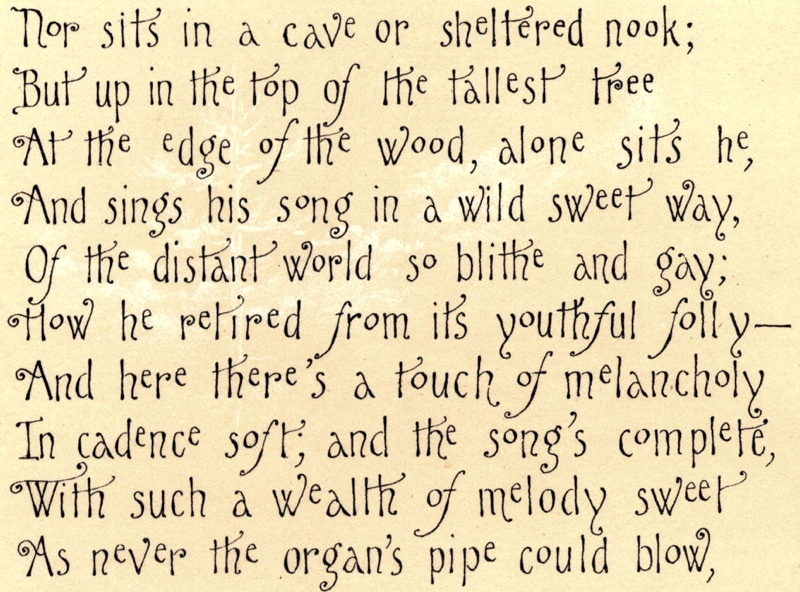 Nor sits in a cave or sheltered nook;
But up in the top of the tallest tree
At the edge of the wood, alone sits he,
And sings his song in a wild sweet way,
Of the distant world so blithe and gay;
How he retired from its youthful folly—
And here there's a touch of melancholy
In cadence soft; and the song's complete,
With such a wealth of melody sweet
As never the organ's pipe could blow,